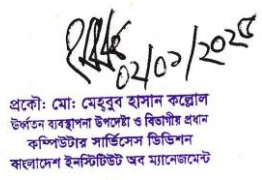 ০২/০১/২০২৫
প্রকৌ: মো: মেহবুব হাসান কল্লোল
ঊর্ধ্বতন ব্যবস্থাপনা উপদেষ্টা ও বিভাগীয় প্রধান
কম্পিউটার সার্ভিসেস ডিভিশন
বাংলাদেশ ইনস্টিটিউট অব ম্যানেজমেন্ট